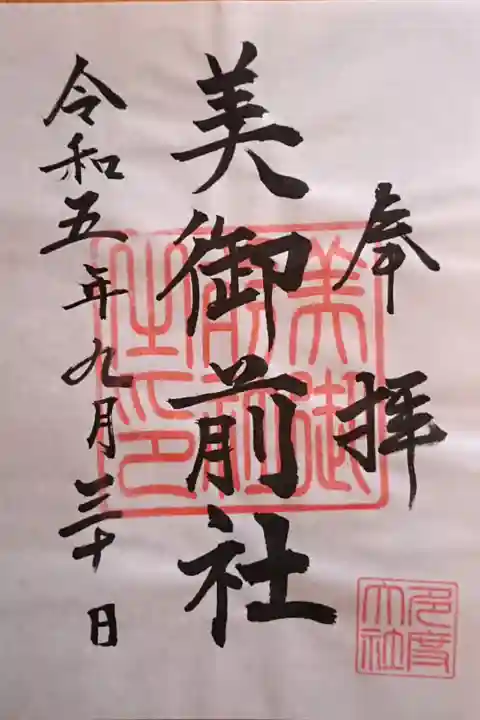 奉拝
美御前社
令和五年九月三十日
美御前社之印
多度大社